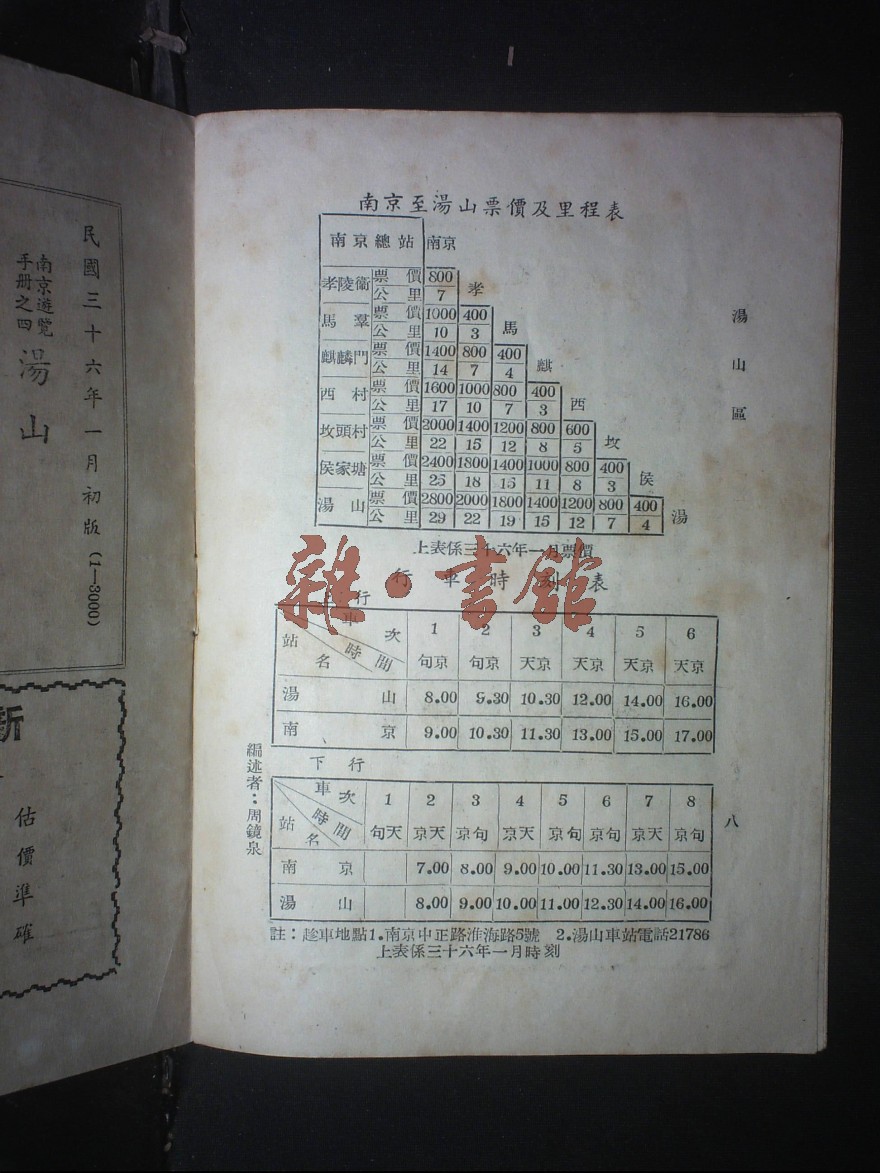 南京至湯山票價及里程表
南京總站 南京
孝陵衞 票價 800 孝
公里 7
馬羣 票價 1000 400 馬
公里 10 3
麒麟門 票價 1400 800 400 麒
公里 14 7 4
西村 票價 1600 1000 800 400 西
公里 17 10 7 3
坟頭村 票價 2000 1400 1200 800 600 坟
公里 22 15 12 8 5
侯家塘 票價 2400 1800 1400 1000 800 400 侯
公里 25 18 15 11 8 3
湯山 票價 2800 2000 1800 1400 1200 800 400 湯
公里 29 22 19 15 12 7 4
上表係三十六年一月票價
行車時刻表
雜·書館
上行
車次 時間 站名 1 2 3 4 5 6
句京 句京 天京 天京 天京 天京
湯山 8.00 9.30 10.30 12.00 14.00 16.00
南京 9.00 10.30 11.30 13.00 15.00 17.00
下行
車次 時間 站名 1 2 3 4 5 6 7 8
句天 京天 京句 京天 京句 京句 京天 京句
南京 7.00 8.00 9.00 10.00 11.30 13.00 15.00
湯山 8.00 9.00 10.00 11.00 12.30 14.00 16.00
註：趁車地點1.南京中正路淮海路5號 2.湯山車站電話21786
上表係三十六年一月時刻
湯山區
八
編述者：周鏡泉
民國三十六年一月初版(1—3000)
南京遊覽
手册之四
湯山
新
估價準確